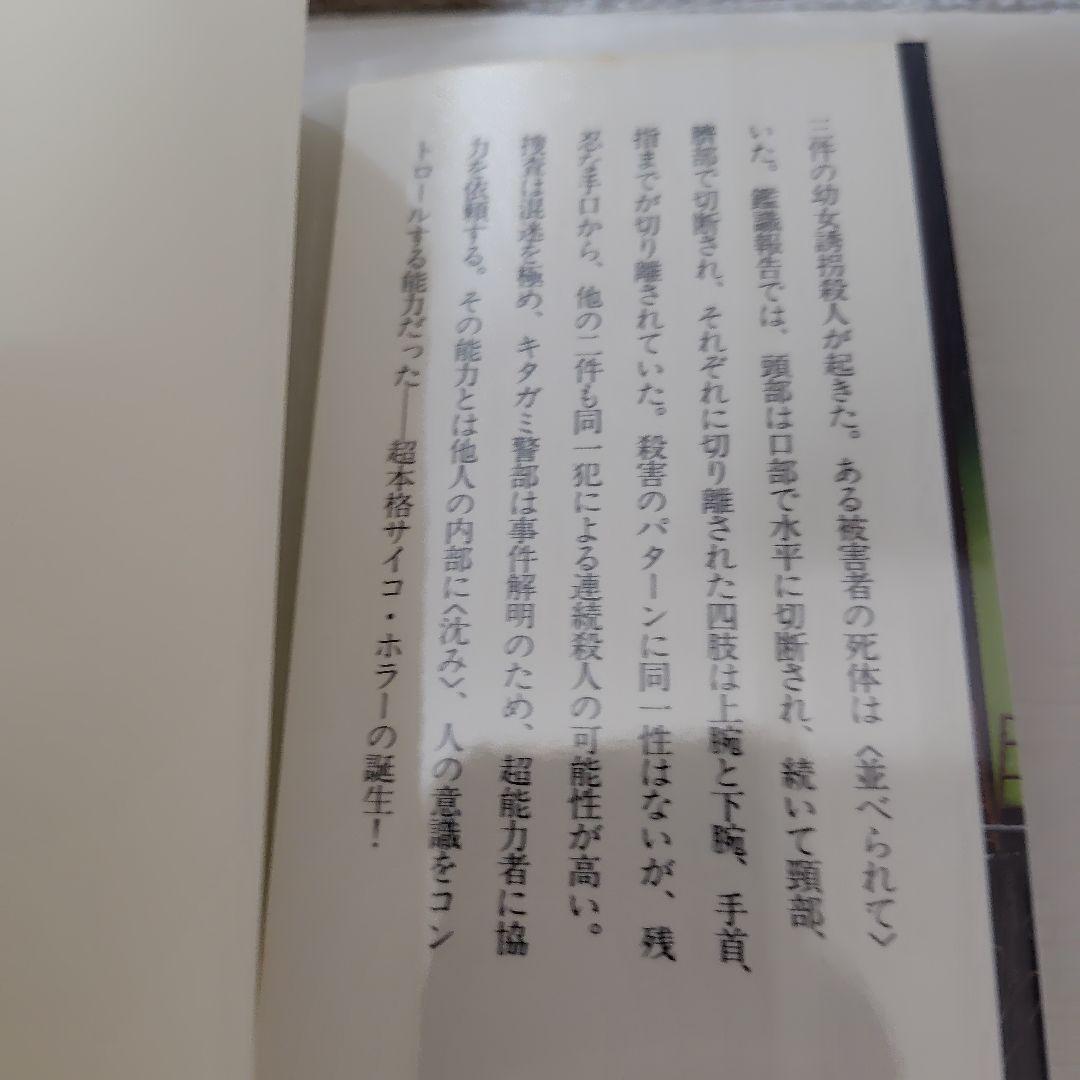 三件の幼女誘拐殺人が起きた。ある被害者の死体は〈並べられて〉
いた。鑑識報告では、頭部は口部で水平に切断され、続いて頸部、
臍部で切断され、それぞれに切り離された四肢は上腕と下腕、手首、
指までが切り離されていた。殺害のパターンに同一性はないが、残
忍な手口から、他の二件も同一犯による連続殺人の可能性が高い。
捜査は混迷を極め、キタガミ警部は事件解明のため、超能力者に協
力を依頼する。その能力とは他人の内部に〈沈み〉、人の意識をコン
トロールする能力だった──超本格サイコ・ホラーの誕生！